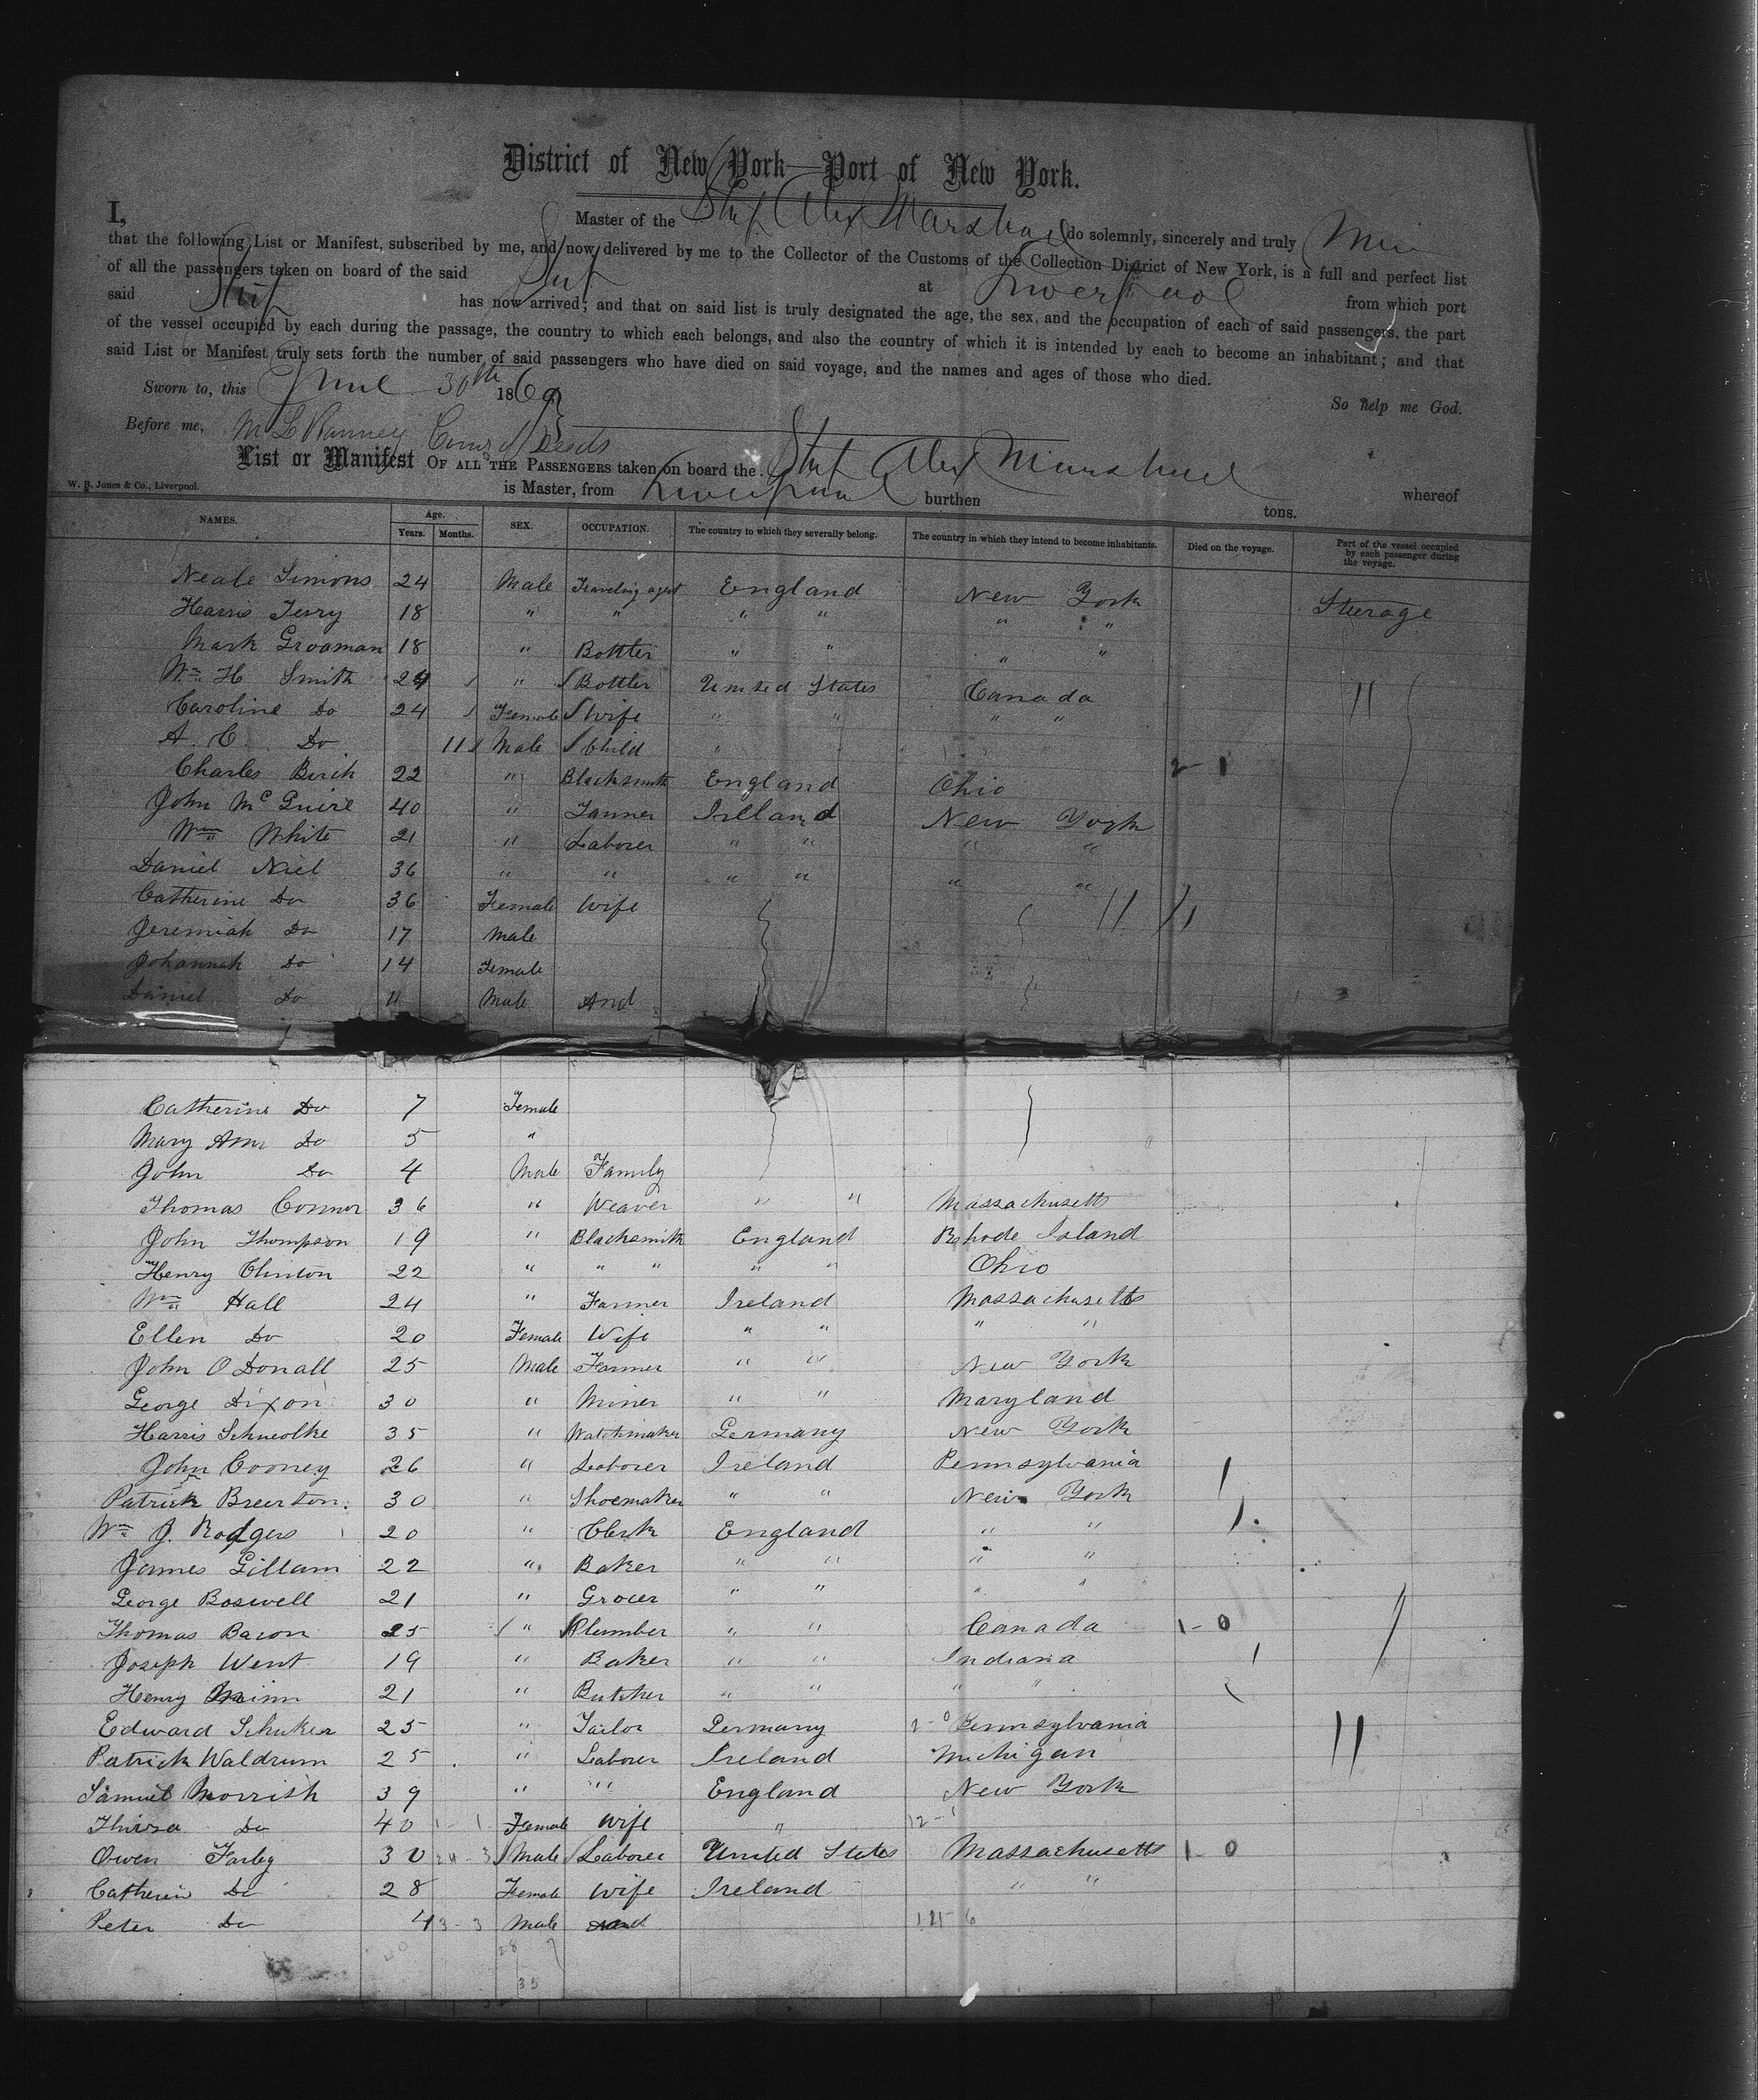 District of New York—Port of New York.
I, Master of the Ship Alex Marshall do solemnly, sincerely and truly
that the following List or Manifest, subscribed by me, and now delivered by me to the Collector of the Customs of the Collection District of New York, is a full and perfect list
of all the passengers taken on board of the said Ship at Liverpool from which port
said Ship has now arrived; and that on said list is truly designated the age, the sex, and the occupation of each of said passengers, the part
of the vessel occupied by each during the passage, the country to which each belongs, and also the country of which it is intended by each to become an inhabitant; and that
said List or Manifest truly sets forth the number of said passengers who have died on said voyage, and the names and ages of those who died.
Sworn to, this June 30th 1869 So help me God.
Before me, M L Ranney Comr of Deeds
List or Manifest OF ALL THE PASSENGERS taken on board the Ship Alex Marshall whereof
W. B. Jones & Co., Liverpool. is Master, from Liverpool burthen tons.
NAMES. Age. Years. Months. SEX. OCCUPATION. The country to which they severally belong. The country in which they intend to become inhabitants. Died on the voyage. Part of the vessel occupied by each passenger during the voyage.
Neale Simons 24 Male Traveling agent England New York Steerage
Harris Terry 18 " " " " " "
Mark Grooman 18 " Bottler " " " "
Wm H Smith 24 " Bottler United States Canada
Caroline Do 24 Female Wife " " " "
A. C. Do 11 Male Child "
Charles Birch 22 " Blacksmith England Ohio 2 - 1
John McGuire 40 " Tanner Ireland New York
Wm White 21 " Laborer " " " "
Daniel Niel 36 " " " " " "
Catherine Do 36 Female Wife
Jeremiah Do 17 Male
Johannah Do 14 Female
Daniel Do 11 Male And
Catherine Do 7 Female
Mary Ann Do 5 "
John Do 4 Male Family
Thomas Connor 36 " Weaver " " Massachusetts
John Thompson 19 " Blacksmith England Rhode Island
Henry Clinton 22 " " " " " Ohio
Wm Hall 24 " Farmer Ireland Massachusetts
Ellen Do 20 Female Wife " " " "
John O Donall 25 Male Farmer " " New York
George Dixon 30 " Miner " " Maryland
Harris Schneolke 35 " Watchmaker Germany New York
John Cooney 26 " Laborer Ireland Pennsylvania
Patrick Breerton. 30 " Shoemaker " " New York
Wm J. Rodgers 20 " Clerk England " "
James Gillam 22 " Baker " " " "
George Boswell 21 " Grocer " " " "
Thomas Bacon 25 " Plumber " " Canada 1 - 0
Joseph Went 19 " Baker " " Indiana
Henry Minn 21 " Butcher " " " "
Edward Schuker 25 " Tailor Germany 2 - 0 Pennsylvania
Patrick Waldrum 25 " Laborer Ireland Michigan
Samuel Morrish 39 " " England New York
Thirza Do 40 1 - 1 Female Wife " 12 - 1
Owen Farley 30 Male Laborer United States Massachusetts 1 - 0
Catherin Do 28 Female Wife Ireland " "
Peter Do 4 3 - 3 Male and
28 7
35